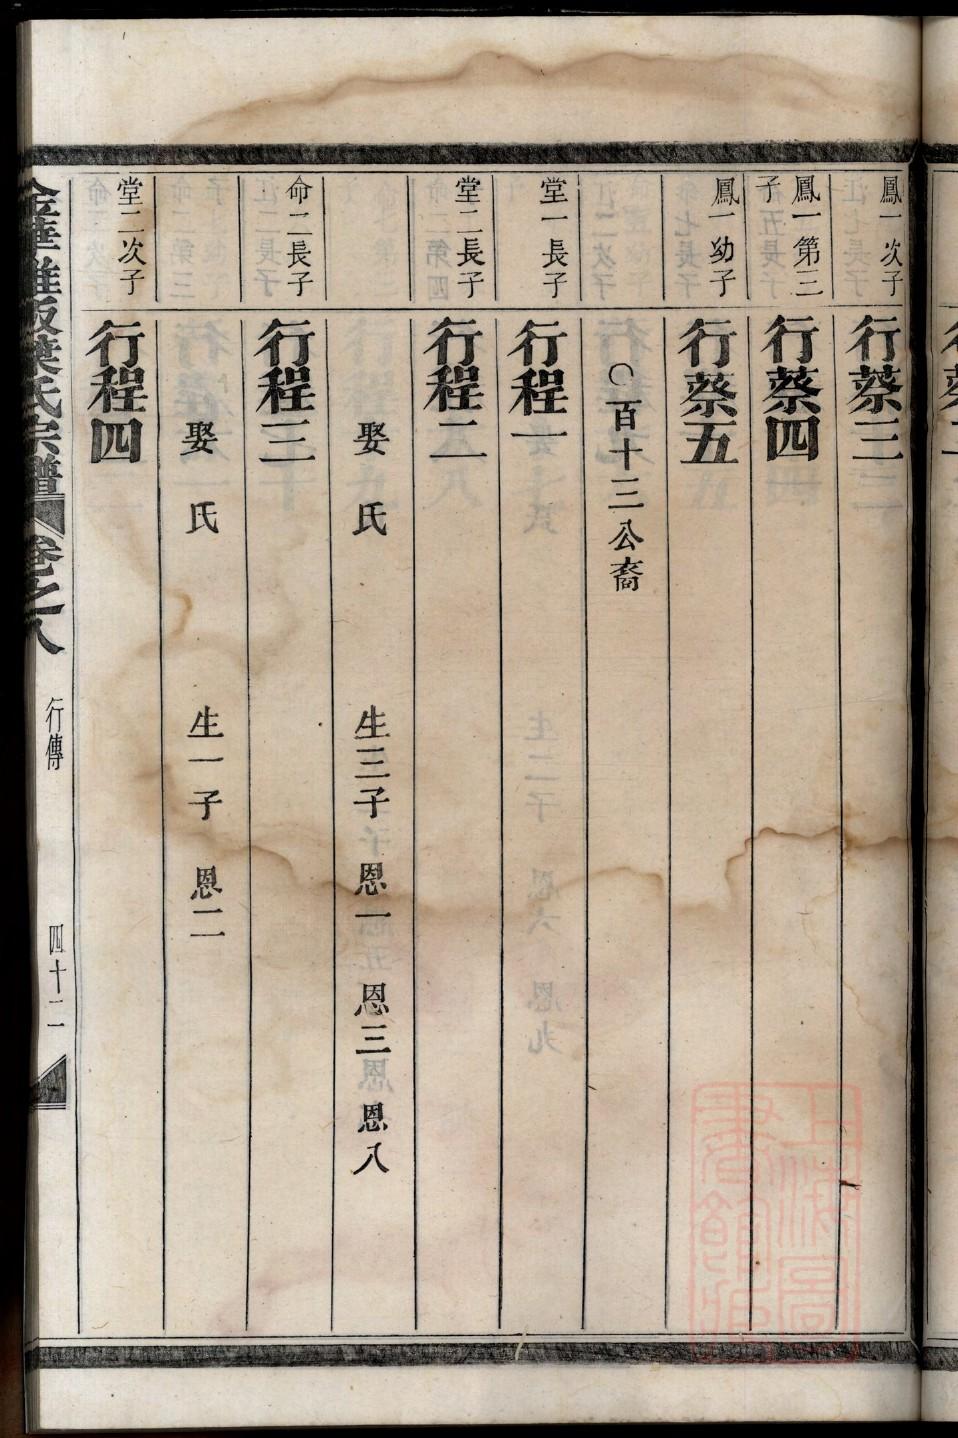 鳳一次子
行蔡三
鳳一第三子
行蔡四
鳳一幼子
行蔡五
○百十三公裔
堂一長子
行程一
堂二長子
行程二
娶氏 生三子 恩一 恩三 恩八
命二長子
行程三
娶氏 生一子 恩二
堂二次子
行程四
葉氏宗譜 卷之八 行傳 四十二